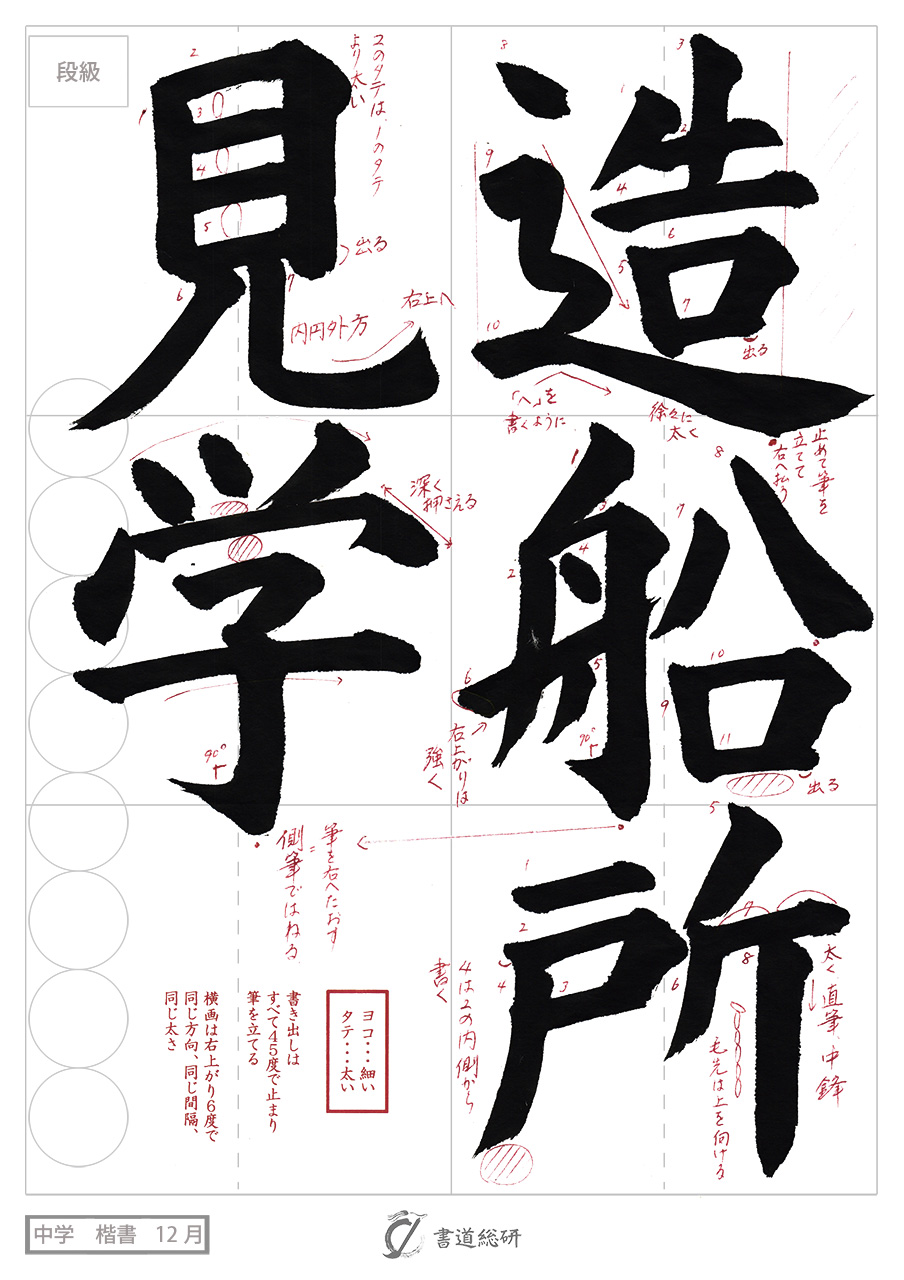 造船所
見学
段級
2のタテは、1のタテ
より太い
出る
内円外方
右上へ
出る
「へ」を
書くように
徐々に
太く
止めて筆を
立てて
右へ払う
深く
押さえる
右上がりは
強く
90°
90°
出る
筆を右へたおす
=
側筆ではねる
4は2の内側から
書く
太く直筆、中鋒
毛先は上を向ける
ヨコ・・・細い
タテ・・・太い
書き出しは
すべて45度で止まり
筆を立てる
横画は右上がり6度で
同じ方向、同じ間隔、
同じ太さ
中学 楷書 12月
書道総研